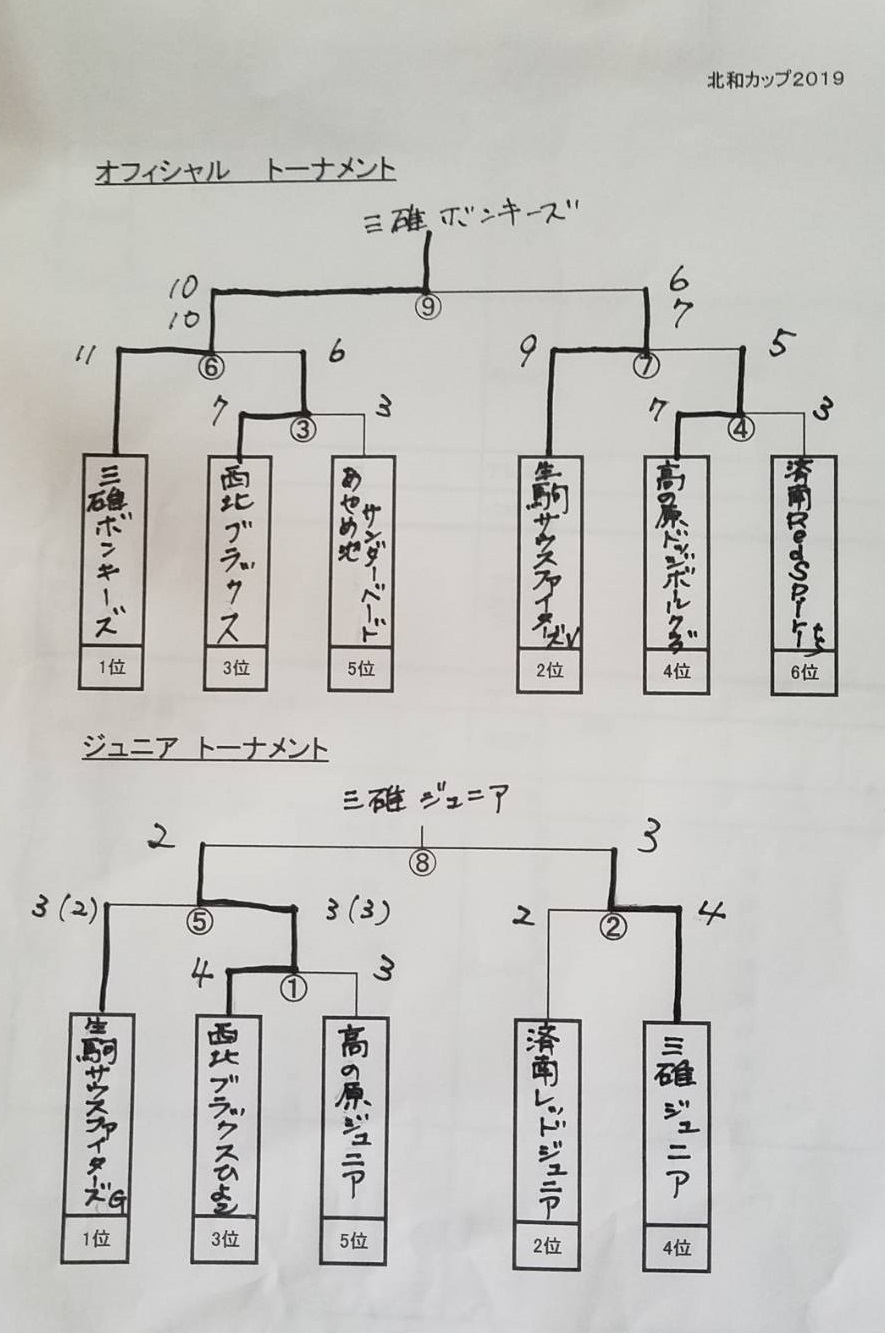 北和カップ2019
オフィシャル トーナメント
三碓ボンキーズ
10 6
⑨
10 7
11 6 9 5
⑥ ⑦
7 3 7 3
③ ④
三碓ボンキーズ
西北ブラックス
あやめ池
サンダーバード
生駒サウスファイターズV
高の原ドッジボールクラブ
済南RedSpirits
1位 3位 5位 2位 4位 6位
ジュニア トーナメント
三碓ジュニア
2 3
⑧
3(2) 3(3) 2 4
⑤ ②
4 3
①
生駒サウスファイターズG
西北ブラックスひよこ
高の原ジュニア
済南レッドジュニア
三碓ジュニア
1位 3位 5位 2位 4位